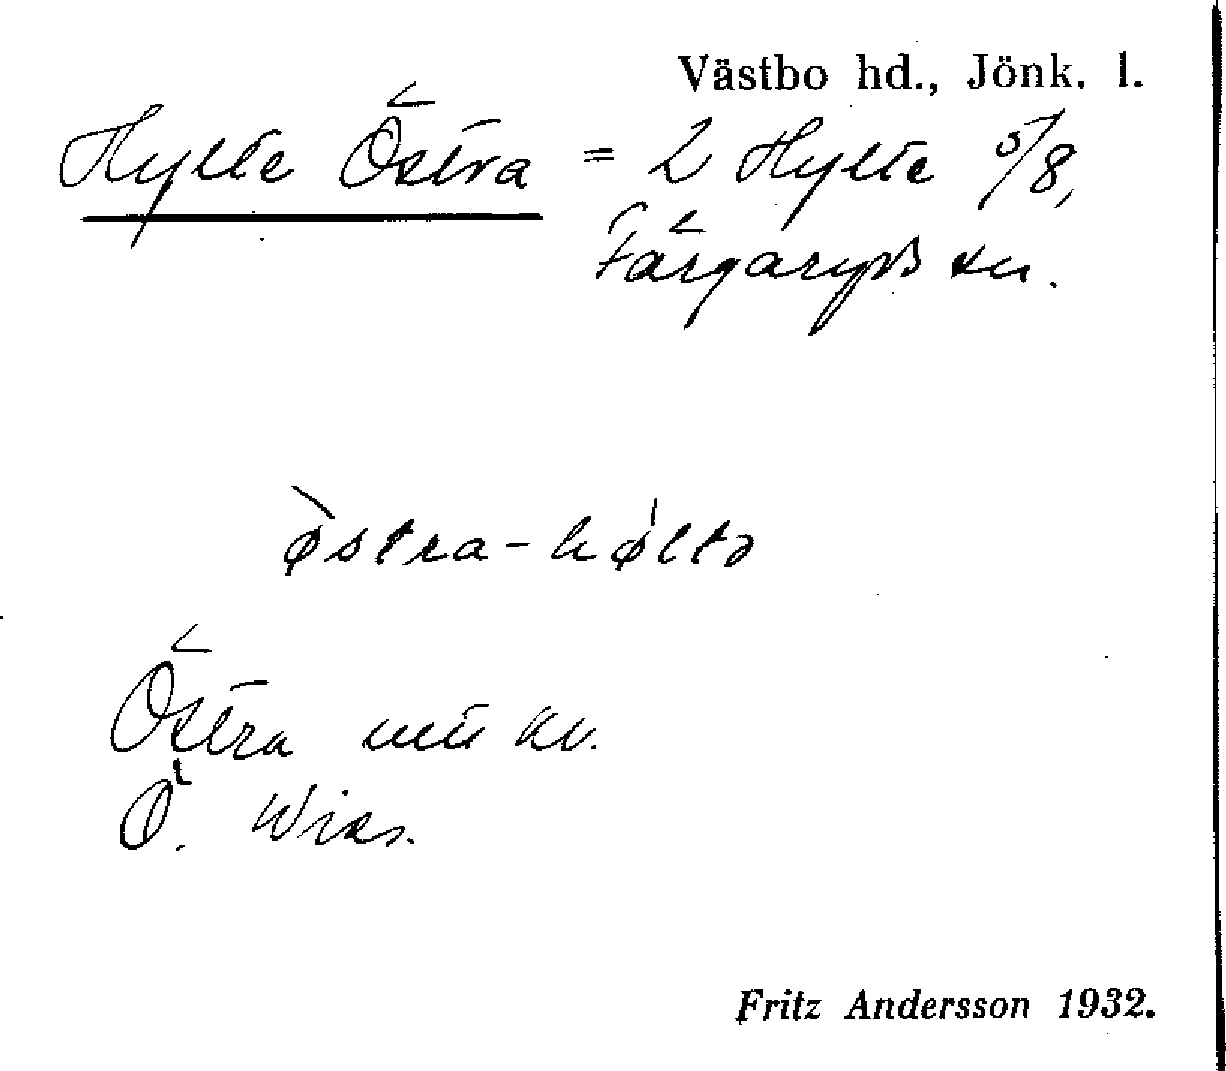 Västbo hd., Jönk. l.
Hylte Östra = 2 Hylte 5/8,
Färgaryds sn.
østra-høltə
Östra
Ö.
Fritz Andersson 1932.